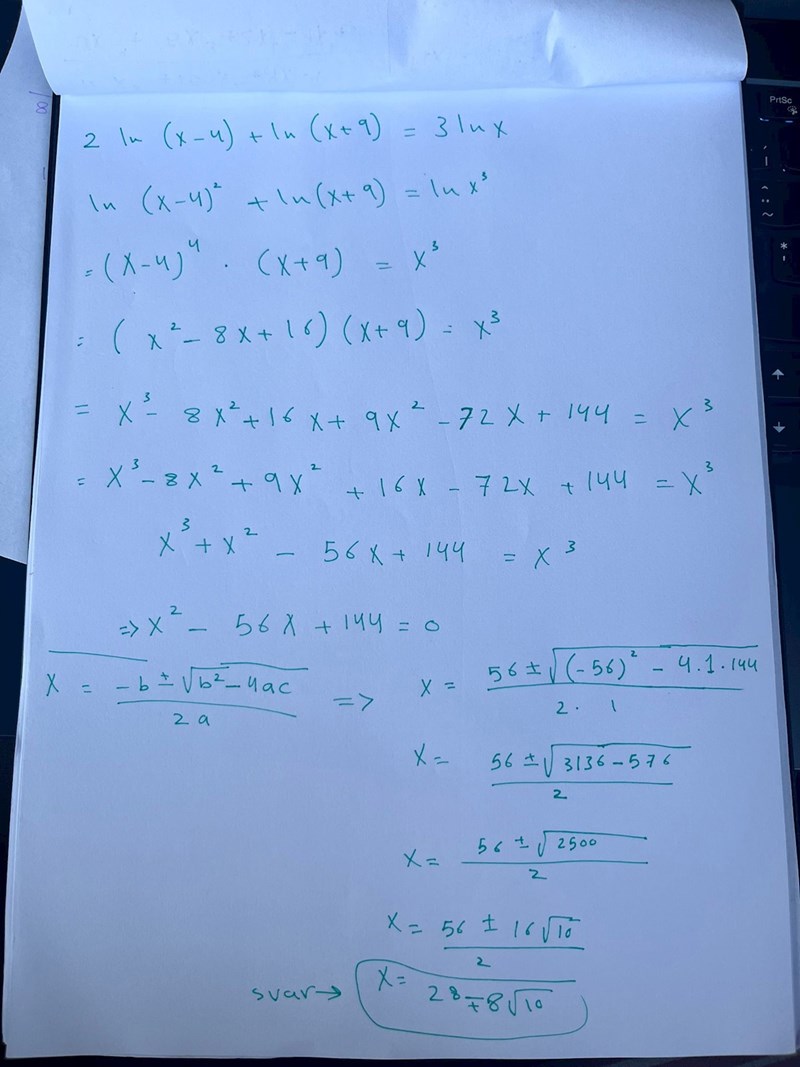 2 ln (x-4) + ln (x+9) = 3 ln x
ln (x-4)² + ln(x+9) = ln x³
= (x-4)⁴ · (x+9) = x³
= (x² - 8x + 16)(x+9) = x³
= x³ - 8x² + 16x + 9x² - 72x + 144 = x³
= x³ - 8x² + 9x² + 16x - 72x + 144 = x³
x³ + x² - 56x + 144 = x³
=> x² - 56x + 144 = 0
x = (-b ± √(b² - 4ac)) / 2a => x = (56 ± √((-56)² - 4·1·144)) / (2·1)
x = (56 ± √(3136 - 576)) / 2
x = (56 ± √2500) / 2
x = (56 ± 16√10) / 2
svar → x = 28 ∓ 8√10
PrtSc